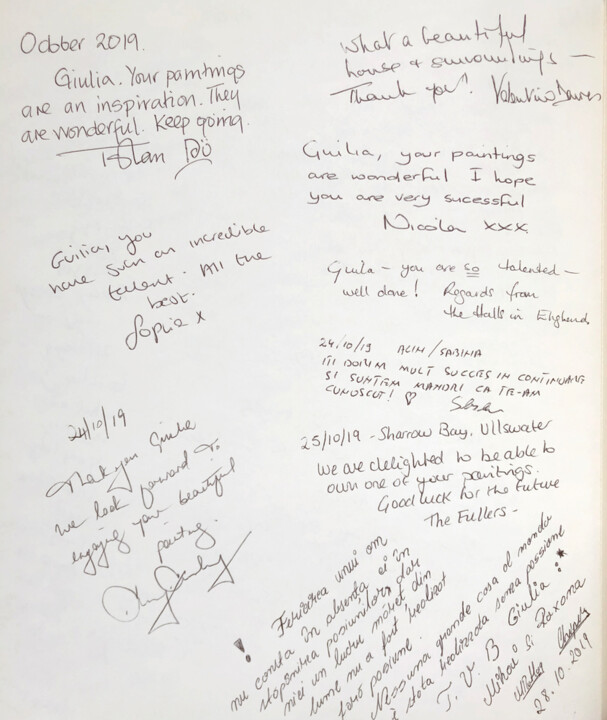 October 2019.
Giulia. Your paintings
are an inspiration. They
are wonderful. Keep going.
Guilia, you
have such an incredible
talent. All the
best.
Sophie x
24/10/19
Thank you Giulia
we look forward to
engaging your beautiful
painting.
What a beautiful
house & surroundings —
Thank you!
Guilia, your paintings
are wonderful I hope
you are very sucessful
Nicola xxx.
Giula - you are so talented -
well done! Regards from
the Halls in England
24/10/19 ALIN/SABINA
ITI DORIM MULT SUCCES IN CONTINUARE
SI SUNTEM MANDRI CA TE-AM
CUNOSCUT! ♡
25/10/19 - Sharrow Bay, Ullswater
We are delighted to be able to
own one of your paintings.
Good luck for the future
The Fullers -
Fericirea unui om
nu consta în absența ei în
stopânirea posiunilor, dar
nici un lucru măreț din
lume nu a fost realizat
fără pasiune.
Nessuna grande cosa al mondo
è stata realizzata senza passione
T. V. B Giulia!
Mihai si Roxana
28.10.2019